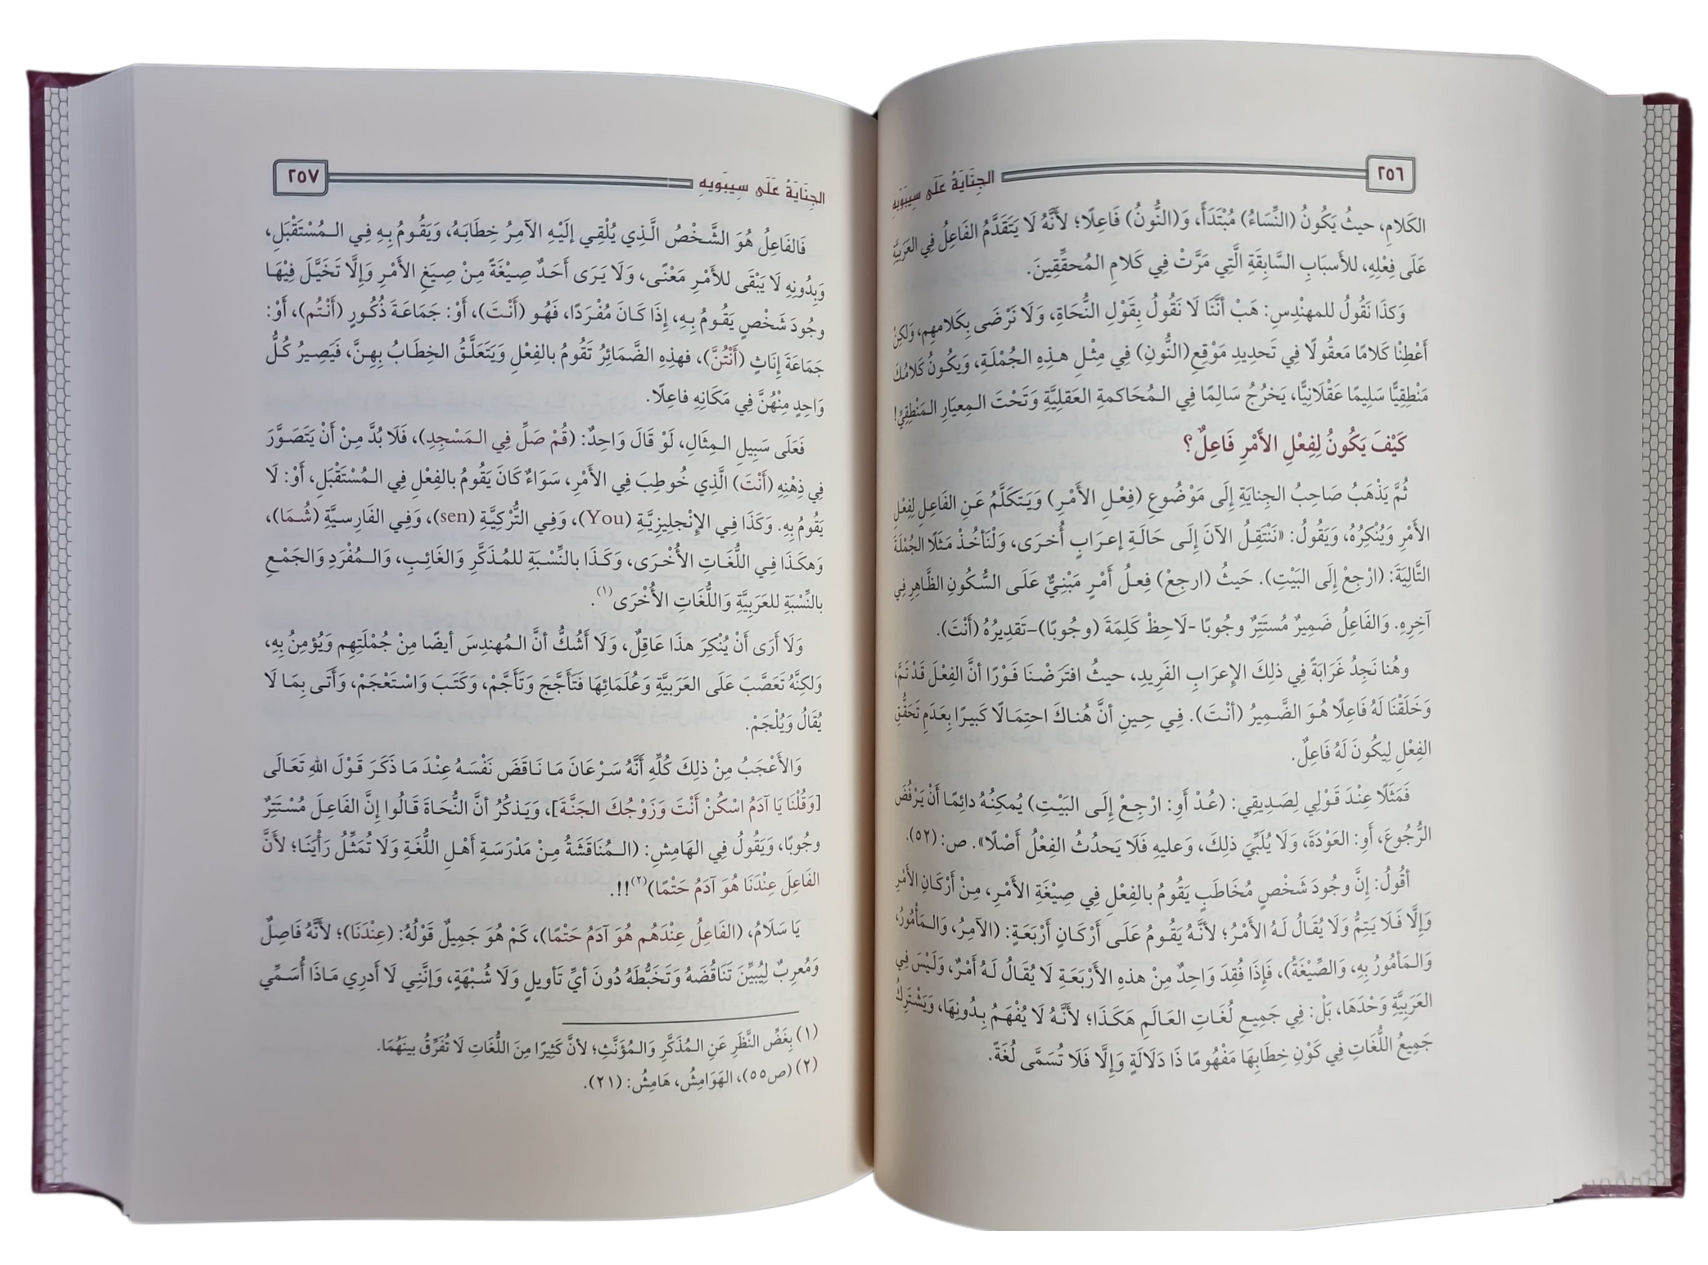 ٢٥٦
الجِنَايَةُ عَلَى سِيبَوَيهِ
الكَلامِ، حيثُ يَكُونُ (النِّسَاءُ) مُبْتَدَأً، وَ(النُّونُ) فَاعِلًا؛ لأَنَّهُ لَا يَتَقَدَّمُ الفَاعِلُ فِي العَرَبِيَّةِ
عَلَى فِعْلِهِ، للأَسبَابِ السَّابِقَةِ الَّتِي مَرَّتْ فِي كَلامِ المُحقِّقِينَ.
وَكَذَا نَقُولُ للمهنْدِسِ: هَبْ أَنَّنَا لَا نَقُولُ بِقَولِ النُّحَاةِ، وَلَا نَرْضَى بِكَلامِهِم، وَلكِنْ
أَعْطِنَا كَلامًا مَعقُولًا فِي تَحدِيدِ مَوْقِعِ (النُّونِ) فِي مِثْلِ هـذِهِ الجُمْلَةِ، وَيَكُونُ كَلامُكَ
مَنْطِقِيًّا سَلِيمًا عَقْلَانِيًّا، يَخرُجُ سَالِمًا فِي المُحَاكمةِ العَقلِيَّةِ وَتَحْتَ المِعيَارِ المَنْطِقِيِّ!
كَيْفَ يَكُونُ لِفِعْلِ الأَمْرِ فَاعِلٌ؟
ثُمَّ يَذْهَبُ صَاحِبُ الجِنايَةِ إِلَى مَوْضُوعِ (فِعْلِ الأَمْرِ) وَيَتَكَلَّمُ عَنِ الفَاعِلِ لِفِعْلِ
الأَمْرِ وَيُنْكِرُهُ، وَيَقُولُ: «نَنْتَقِلُ الآنَ إِلَى حَالَةِ إِعرَابٍ أُخرَى، وَلْنَأخُذْ مَثَلًا الجُمْلَةَ
التَّالِيَةَ: (ارْجِعْ إِلَى البَيْتِ). حَيثُ (ارجِعْ) فِعلُ أَمْرٍ مَبْنِيٌّ عَلَى السُّكُونِ الظَّاهِرِ فِي
آخِرِهِ. وَالفَاعِلُ ضَمِيرٌ مُسْتَتِرٌ وجُوبًا -لَاحِظْ كَلِمَةَ (وجُوبًا)-تَقدِيرُهُ (أَنْتَ).
وهُنا نَجِدُ غَرَابَةً فِي ذلِكَ الإِعرَابِ الفَرِيدِ، حيثُ افتَرَضْـنَا فَوْرًا أنَّ الفِعْلَ قَدْ تَمَّ،
وَخَلَقْنَا لَهُ فَاعِلًا هُـوَ الضَّمِيرُ (أَنْتَ). فِي حِينِ أنَّ هُنَاكَ احتِمَالًا كَبِيرًا بِعَدَمِ تَحَقُّقِ
الفِعْلِ لِيكُونَ لَهُ فَاعِلٌ.
فَمَثَلًا عِنْدَ قَوْلِي لِصَدِيقِي: (عُـدْ أَو: ارْجِعْ إِلَى البَيْتِ) يُمكِنُهُ دائِمًا أَنْ يَرْفُضَ
الرُّجُوعَ، أَوِ: العَوْدَةَ، وَلَا يُلَبِّيَ ذلِكَ، وَعليهِ فَلَا يَحدُثُ الفِعْلُ أَصْلًا». ص: (٥٢).
أقُولُ: إِنَّ وجُودَ شَخْصٍ مُخَاطَبٍ يَقُومُ بالفِعْلِ فِي صِيْغَةِ الأَمْرِ، مِنْ أَرْكَانِ الأَمْرِ
وَإِلَّا فَلَا يَتِمُّ وَلَا يُقَالُ لَهُ الأَمْرُ؛ لأَنَّـهُ يَقُومُ عَلَى أَرْكَانٍ أَرْبَعَةٍ: (الآمِرُ، وَالـمَأْمُورُ،
وَالـمَأمُورُ بِهِ، وَالصِّيْغَةُ)، فَإِذَا فُقِدَ وَاحِدٌ مِنْ هذهِ الأَرْبَعَةِ لَا يُقَالُ لَهُ أَمْرٌ، وَلَيْسَ فِي
العَرَبِيَّةِ وَحْدَهَا، بَلْ: فِي جَمِيعِ لُغَاتِ العَالَمِ هَكَذَا؛ لأَنَّهُ لَا يُفْهَمُ بِدُونِهَا، وَيَشْتَرِكُ
جَمِيعُ اللُّغَاتِ فِي كَوْنِ خِطَابِهَا مَفْهُومًا ذَا دَلَالَةٍ وَإِلَّا فَلَا تُسَمَّى لُغَةً.
الجِنَايَةُ عَلَى سِيبَويهِ
٢٥٧
فَالفَاعِلُ هُوَ الشَّخْصُ الَّذِي يُلْقِي إِلَيْهِ الآمِرُ خِطَابَهُ، وَيَقُومُ بِهِ فِي الـمُسْتَقْبَلِ،
وَبِدُونِهِ لَا يَبْقَى للأَمْرِ مَعْنًى، وَلَا يَرَى أَحَدٌ صِيْغَةً مِنْ صِيَغِ الأَمْرِ وَإِلَّا تَخَيَّلَ فِيْهَا
وجُودَ شَخْصٍ يَقُومُ بِهِ، إِذَا كَانَ مُفْرَدًا، فَهُو (أَنْتَ)، أَوْ: جَمَاعَةَ ذُكُورٍ (أَنْتُم)، أَوْ:
جَمَاعَةَ إِنَاثٍ (أَنْتُنَّ)، فهذِهِ الضَّمَائِرُ تَقُومُ بالفِعْلِ وَيَتَعَلَّقُ الخِطَابُ بِهِنَّ، فَيَصِيرُ كُلُّ
وَاحِدٍ مِنْهُنَّ فِي مَكَانِهِ فاعِلًا.
فَعَلَى سَبِيلِ المِثَالِ، لَوْ قَالَ وَاحِدٌ: (قُمْ صَلِّ فِي المَسْجِدِ)، فَلَا بُدَّ مِنْ أَنْ يَتَصَوَّرَ
فِي ذِهْنِهِ (أَنْتَ) الَّذِي خُوطِبَ فِي الأَمْرِ، سَوَاءٌ كَانَ يَقُومُ بِالفِعْلِ فِي الـمُسْتَقْبَلِ، أَوْ: لَا
يَقُومُ بِهِ. وَكَذَا فِي الإِنْجلِيزِيَّةِ (You)، وَفِي التُّرْكِيَّةِ (sen)، وَفِي الفَارِسِيَّةِ (شُمَا)،
وَهكَذَا فِي اللُّغَاتِ الأُخْرَى، وَكَذَا بالنِّسْبَةِ للمُذَكَّرِ وَالغَائِبِ، وَالـمُفْرَدِ وَالجَمْعِ
بالنِّسْبَةِ للعَرَبِيَّةِ وَاللُّغَاتِ الأُخْرَى(١).
وَلَا أَرَى أَنْ يُنْكِرَ هذَا عَاقِلٌ، وَلَا أَشُكُّ أنَّ الـمُهندِسَ أيضًا مِنْ جُمْلَتِهِم وَيُؤمِنُ بِهِ،
وَلكِنَّهُ تَعَصَّبَ عَلَى العَرَبِيَّةِ وَعُلَمَائِهَا فَتَأَجَّجَ وَتَأَجَّمَ، وَكَتَبَ وَاسْتَعْجَمَ، وَأَتَى بِمَا لَا
يُقَالُ وَيُلْجَمْ.
وَالأَعْجَبُ مِنْ ذلِكَ كُلِّهِ أَنَّهُ سَرْعَانَ مَا نَاقَضَ نَفْسَهُ عِنْدَ مَا ذَكَرَ قَوْلَ اللهِ تَعَالَى
[وَقُلْنَا يَا آدَمُ اسْكُنْ أَنْتَ وَزَوْجُكَ الجَنَّةَ]، وَيَذكُرُ أنَّ النُّحَاةَ قَالُوا إِنَّ الفَاعِلَ مُسْتَتِرٌ
وجُوبًا، وَيَقُولُ فِي الهَامِشِ: (المُنَاقَشَةُ مِنْ مَدْرَسَةِ أَهْلِ اللُّغَةِ وَلَا تُمَثِّلُ رَأْيَنَا؛ لأَنَّ
الفَاعِلَ عِنْدَنَا هُوَ آدَمُ حَتْمًا)(٢)!!.
يَا سَلَامُ، (الفَاعِلُ عِنْدَهُم هُوَ آدَمُ حَتْمًا)، كَمْ هُوَ جَمِيلٌ قَوْلُهُ: (عِنْدَنَا)؛ لأَنَّهُ فَاصِلٌ
وَمُعرِبٌ لِيُبيِّنَ تَنَاقُضَهُ وَتَخَبُّطَهُ دُونَ أيِّ تَأويلٍ وَلَا شُبْهَةٍ، وَإِنَّنِي لَا أَدرِي مَاذَا أُسَمِّي
(١) بِغَضِّ النَّظَرِ عَنِ الـمُذَكَّرِ وَالـمُؤَنَّثِ؛ لأنَّ كَثِيرًا مِنَ اللُّغَاتِ لَا تُفَرِّقُ بينَهُمَا.
(٢) (ص٥٥)، الهَوَامِشُ، هَامِشُ: (٢١).